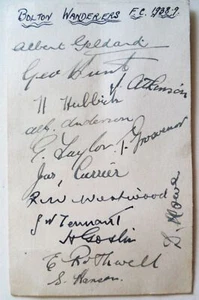 BOLTON WANDERERS F.C. 1938-9.
Albert Geldard
Geo Hunt
J. Atkinson
H Hubbick
Jas. Currier
G. Taylor
T Grosvenor
R.W. Westwood
J W Tennant
H Goslin
D. Howe
E Rothwell
S. Hanson.